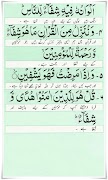 اَلْوَانُهٗ فِيْهِ شِفَآءٌ لِّلنَّاسِ
۴- وَنُنَزِّلُ مِنَ الْقُرْاٰنِ مَا هُوَ شِفَآءٌ
وَّرَحْمَةٌ لِّلْمُؤْمِنِيْنَ
۵- وَاِذَا مَرِضْتُ فَهُوَ يَشْفِيْنِ
۶- قُلْ هُوَ لِلَّذِيْنَ اٰمَنُوْا هُدًى وَّ
شِفَآءٌ